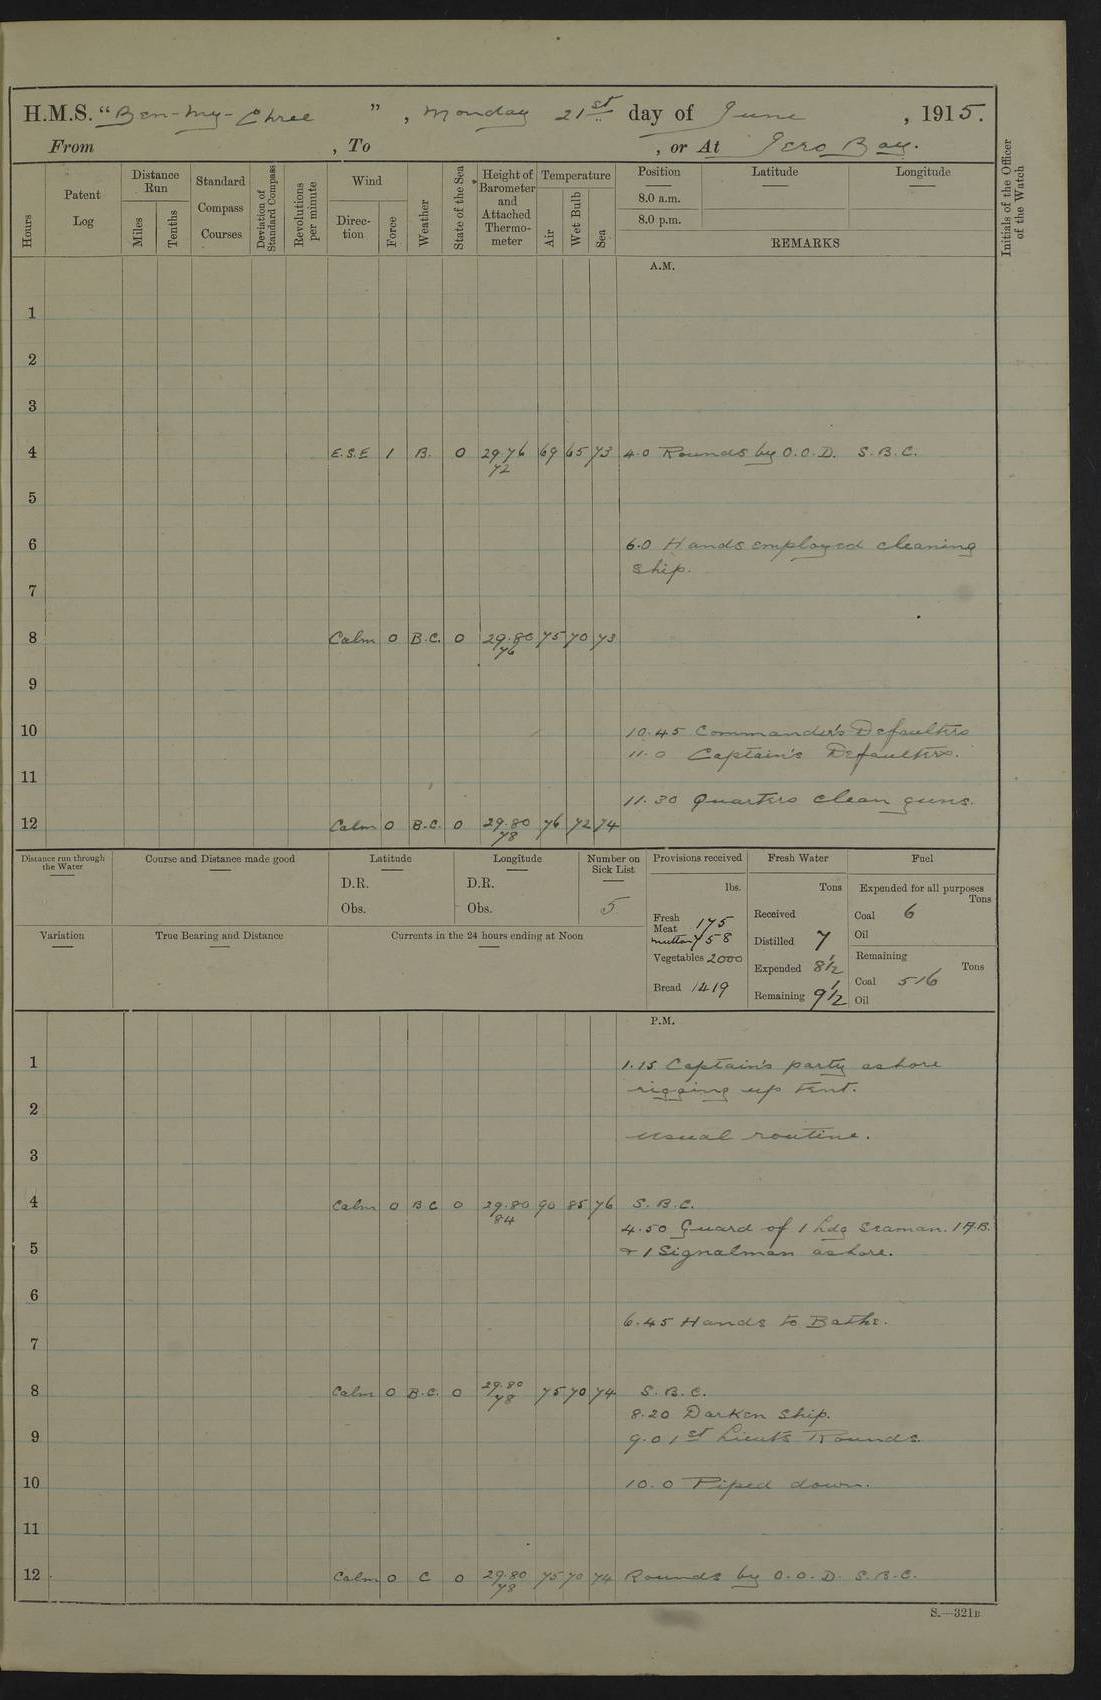 H.M.S. "Ben-my-Chree", Monday 21st day of June, 1915.
From , To , or At Iero Bay.
Hours
Patent Log
Distance Run
Miles
Tenths
Standard Compass Courses
Deviation of Standard Compass
Revolutions per minute
Wind
Direction
Force
Weather
State of the Sea
Height of Barometer and Attached Thermometer
Temperature
Air
Wet Bulb
Sea
Position
8.0 a.m.
8.0 p.m.
Latitude
Longitude
REMARKS
Initials of the Officer of the Watch
A.M.
1
2
3
4 E.S.E 1 B. 0 29.76 69 65 73 4.0 Rounds by O.O.D. S.B.C.
72
5
6 6.0 Hands employed cleaning
ship.
7
8 Calm 0 B.C. 0 29.80 75 70 73
76
9
10 10.45 Commander's Defaulters
11.0 Captain's Defaulters.
11
11.30 Quarters clean guns.
12 Calm 0 B.C. 0 29.80 76 72 74
78
Distance run through the Water
Course and Distance made good
Latitude
D.R.
Obs.
Longitude
D.R.
Obs.
Number on Sick List
5
Provisions received
lbs.
Fresh Meat 175
mutton 758
Vegetables 2000
Bread 1419
Fresh Water
Tons
Received
Distilled 7
Expended 8½
Remaining 9½
Fuel
Expended for all purposes
Tons
Coal 6
Oil
Remaining
Tons
Coal 516
Oil
Variation
True Bearing and Distance
Currents in the 24 hours ending at Noon
P.M.
1 1.15 Captain's party ashore
rigging up tent.
2
usual routine.
3
4 Calm 0 B C 0 29.80 90 85 76 S.B.C.
84
4.50 Guard of 1 Ldg Seaman. 1 A.B.
5 + 1 Signalman ashore.
6
6.45 Hands to Bathe.
7
8 Calm 0 B.C. 0 29.80 75 70 74 S.B.C.
78
8.20 Darken ship.
9 9.0 1st Lieuts Rounds.
10 10.0 Piped down.
11
12 Calm 0 C 0 29.80 75 70 74 Rounds by O.O.D. S.B.C.
78
S.—321B